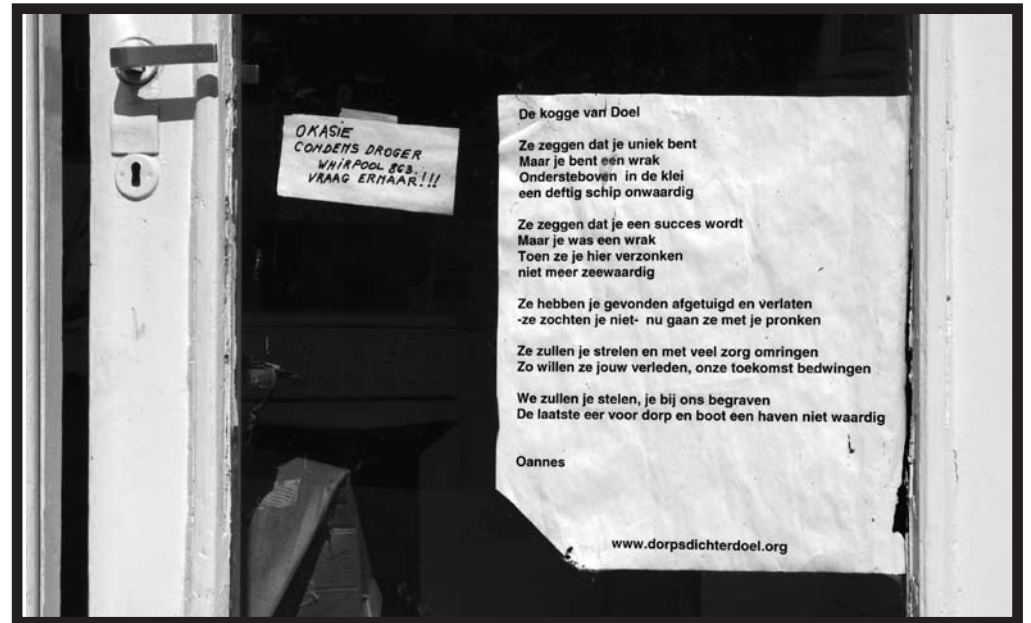 OKASIE
CONDENS DROGER
WHIRPOOL 863.
VRAAG ERNAAR!!!
De kogge van Doel
Ze zeggen dat je uniek bent
Maar je bent een wrak
Ondersteboven in de klei
een deftig schip onwaardig
Ze zeggen dat je een succes wordt
Maar je was een wrak
Toen ze je hier verzonken
niet meer zeewaardig
Ze hebben je gevonden afgetuigd en verlaten
-ze zochten je niet- nu gaan ze met je pronken
Ze zullen je strelen en met veel zorg omringen
Zo willen ze jouw verleden, onze toekomst bedwingen
We zullen je stelen, je bij ons begraven
De laatste eer voor dorp en boot een haven niet waardig
Oannes
www.dorpsdichterdoel.org